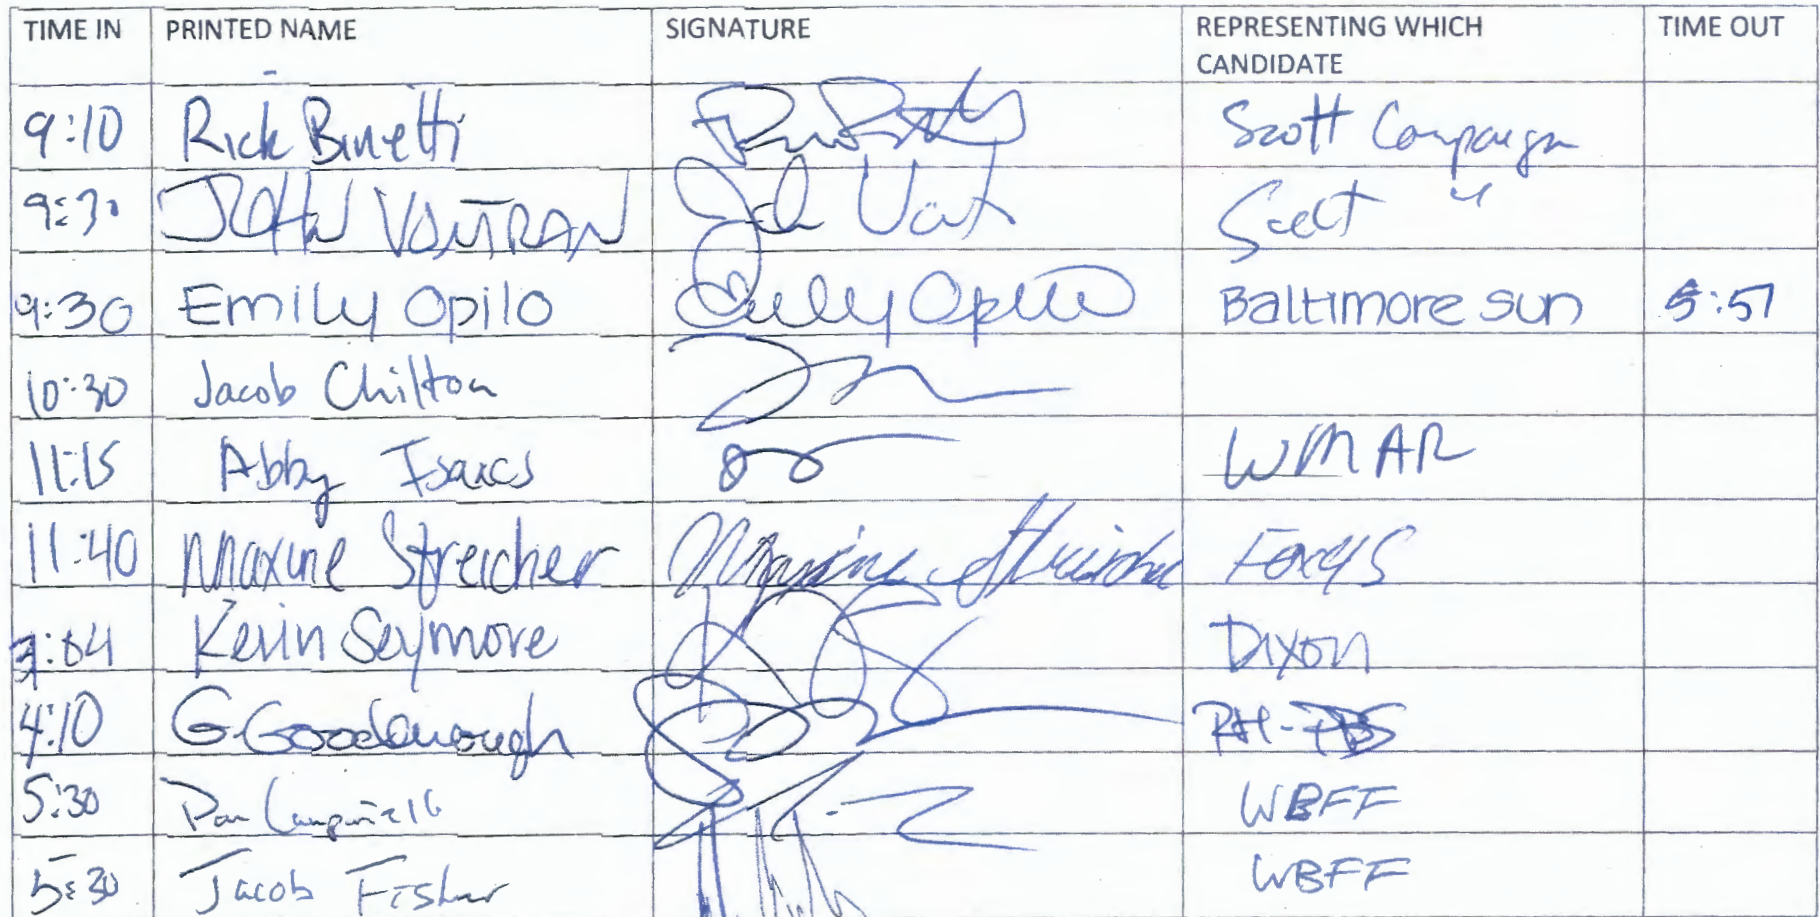 TIME IN PRINTED NAME SIGNATURE REPRESENTING WHICH CANDIDATE TIME OUT
9:10 Rick Binetti Scott Campaign
9:30 JOHN Scott "
9:30 Emily Opilo Emily Opilo Baltimore Sun 5:57
10:30 Jacob Chilton
11:15 Abby Isaacs WMAR
11:40 Maxine Streicher Maxine Streicher Fox45
:04 Kevin Seymore Dixon
4:10 G. Goodenough
5:30 WBFF
5:30 Jacob Fisher WBFF